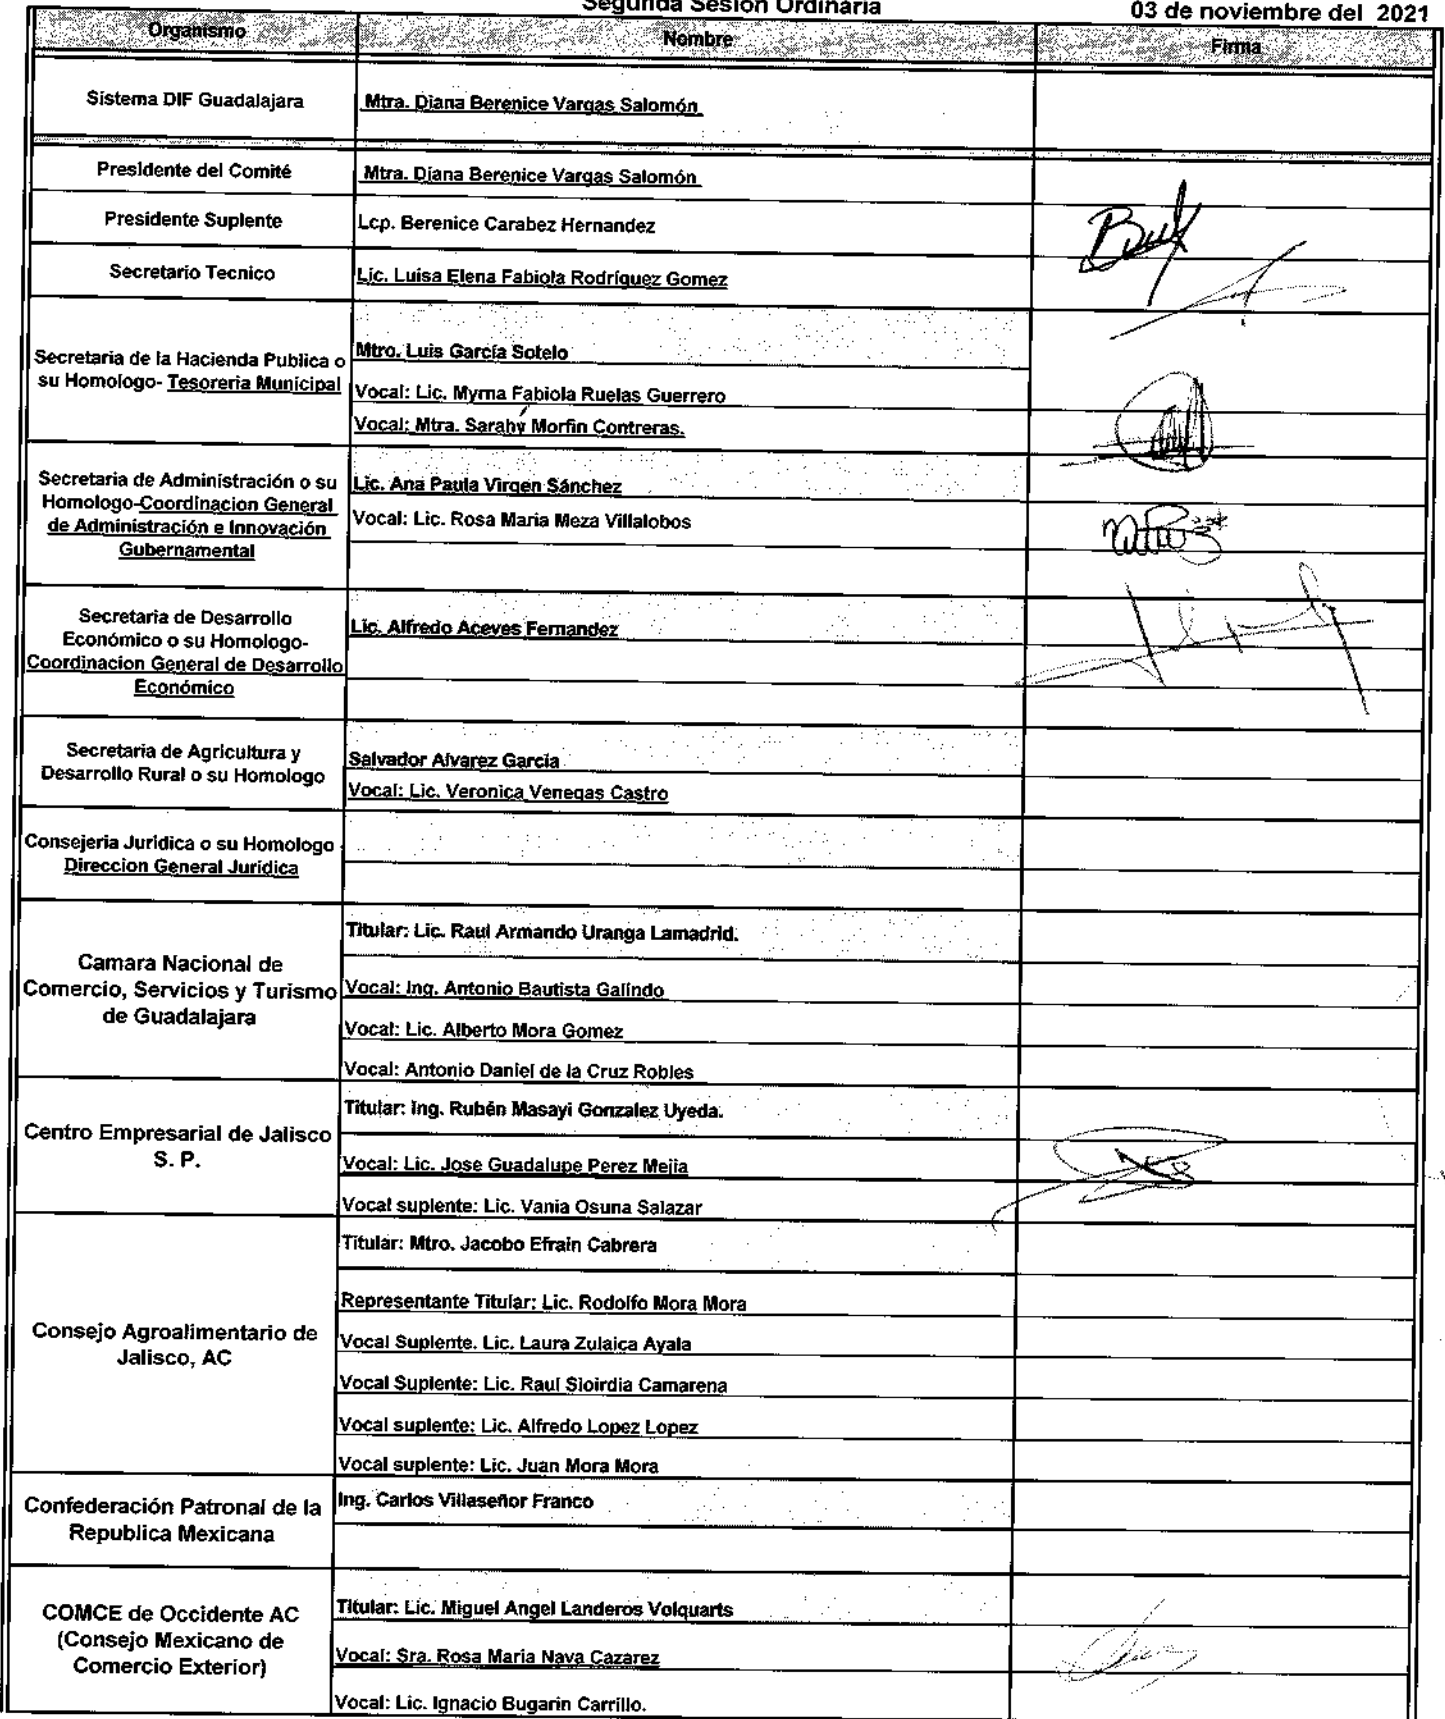 Segunda Sesion Ordinaria
03 de noviembre del 2021
Organismo
Nombre
Firma
Sistema DIF Guadalajara
Mtra. Diana Berenice Vargas Salomón
Presidente del Comité
Mtra. Diana Berenice Vargas Salomón
Presidente Suplente
Lcp. Berenice Carabez Hernandez
Secretario Tecnico
Lic. Luisa Elena Fabiola Rodríguez Gomez
Secretaria de la Hacienda Publica o
su Homologo- Tesoreria Municipal
Mtro. Luis García Sotelo
Vocal: Lic. Myrna Fabiola Ruelas Guerrero
Vocal: Mtra. Sarahý Morfin Contreras.
Secretaria de Administración o su
Homologo-Coordinacion General
de Administración e Innovación
Gubernamental
Lic. Ana Paula Virgen Sánchez
Vocal: Lic. Rosa Maria Meza Villalobos
Secretaria de Desarrollo
Económico o su Homologo-
Coordinacion General de Desarrollo
Económico
Lic. Alfredo Aceves Fernandez
Secretaria de Agricultura y
Desarrollo Rural o su Homologo
Salvador Alvarez García
Vocal: Lic. Veronica Venegas Castro
Consejeria Juridica o su Homologo
Direccion General Jurídica
Camara Nacional de
Comercio, Servicios y Turismo
de Guadalajara
Titular: Lic. Raul Armando Uranga Lamadrid.
Vocal: Ing. Antonio Bautista Galindo
Vocal: Lic. Alberto Mora Gomez
Vocal: Antonio Daniel de la Cruz Robles
Centro Empresarial de Jalisco
S. P.
Titular: Ing. Rubén Masayi Gonzalez Uyeda.
Vocal: Lic. Jose Guadalupe Perez Mejia
Vocal suplente: Lic. Vania Osuna Salazar
Consejo Agroalimentario de
Jalisco, AC
Titular: Mtro. Jacobo Efrain Cabrera
Representante Titular: Lic. Rodolfo Mora Mora
Vocal Suplente. Lic. Laura Zulaica Ayala
Vocal Suplente: Lic. Raul Sioirdia Camarena
Vocal suplente: Lic. Alfredo Lopez Lopez
Vocal suplente: Lic. Juan Mora Mora
Confederación Patronal de la
Republica Mexicana
Ing. Carlos Villaseñor Franco
COMCE de Occidente AC
(Consejo Mexicano de
Comercio Exterior)
Titular: Lic. Miguel Angel Landeros Volquarts
Vocal: Sra. Rosa Maria Nava Cazarez
Vocal: Lic. Ignacio Bugarin Carrillo.